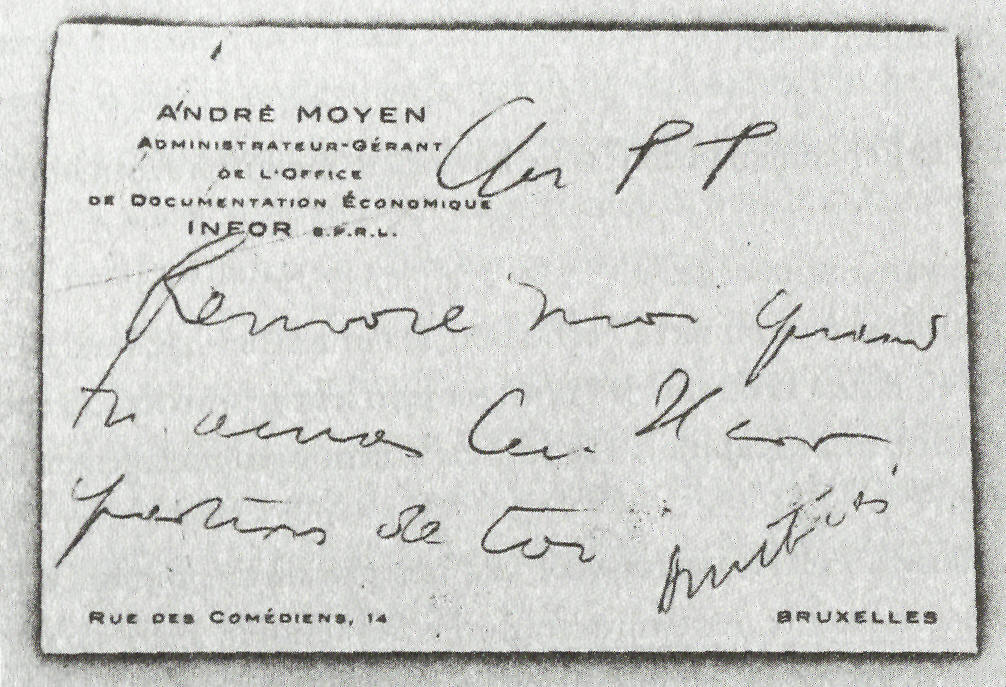 ANDRÉ MOYEN
ADMINISTRATEUR-GÉRANT
DE L'OFFICE
DE DOCUMENTATION ÉCONOMIQUE
INFOR S.P.R.L.
Cher PP
Renvoie moi quand
tu auras lu. Il est
question de toi
Amitiés
RUE DES COMÉDIENS, 14
BRUXELLES